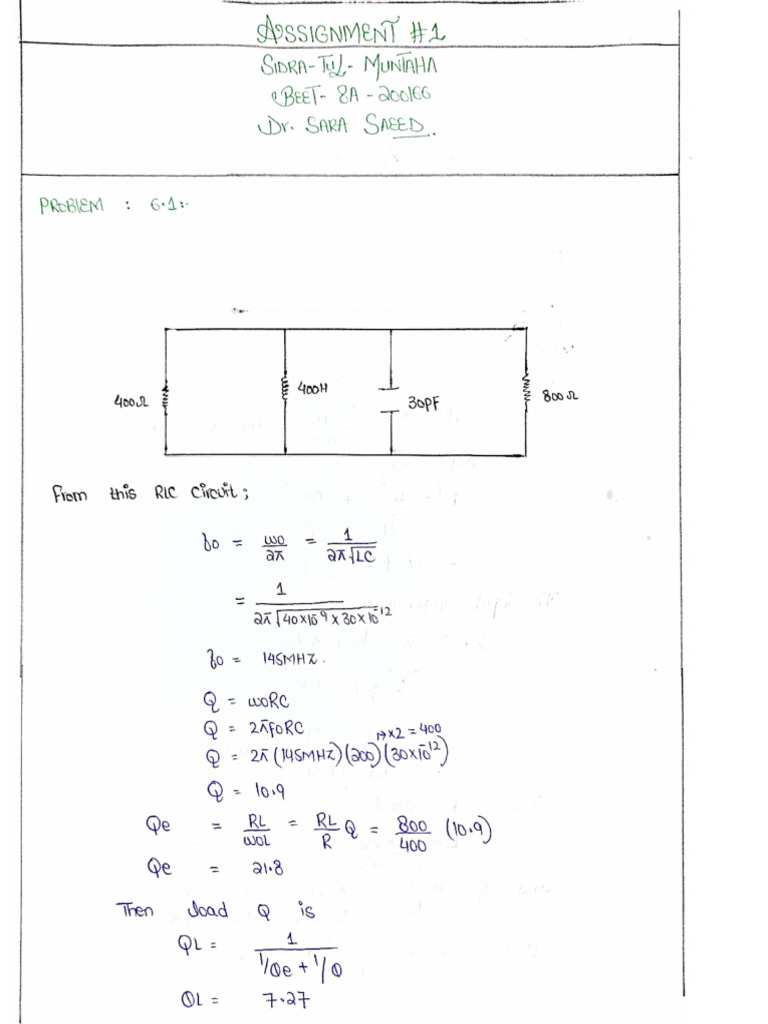 ASSIGNMENT #1
SIDRA-TUL-MUNTAHA
BEET-8A-200166
Dr. SARA SAEED.
PROBLEM : 6.1:-
400Ω
400H
30PF
800Ω
From this RLC circuit;
fo = ωo/2π = 1/2π√LC
= 1/2π√40×10⁻⁹×30×10⁻¹²
fo = 145MHz.
Q = ωoRC
Q = 2πfoRC
↳×2=400
Q = 2π(145MHz)(200)(30×10⁻¹²)
Q = 10.9
Qe = RL/ωoL = RL/R Q = 800/400 (10.9)
Qe = 21.8
Then load Q is
QL = 1/(1/Qe + 1/Q)
QL = 7.27